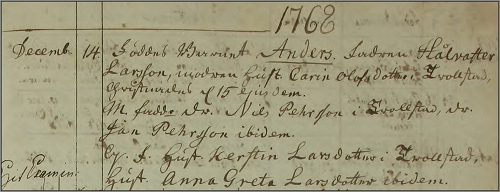 1768
Decemb. 14 Föddes Barnet Anders. fadren Hålvaster
Larsson, modren Hust. Carin Olofsdotter i Trollstad,
Christnades d 15 ejusdem.
M. fadd. dr. Nils Pehrsson i Trollstad, dr.
Jan Pehrsson ibidem.
Qv. f. Hust. Kerstin Larsdotter i Trollstad,
Hust. Anna Greta Larsdotter ibidem.